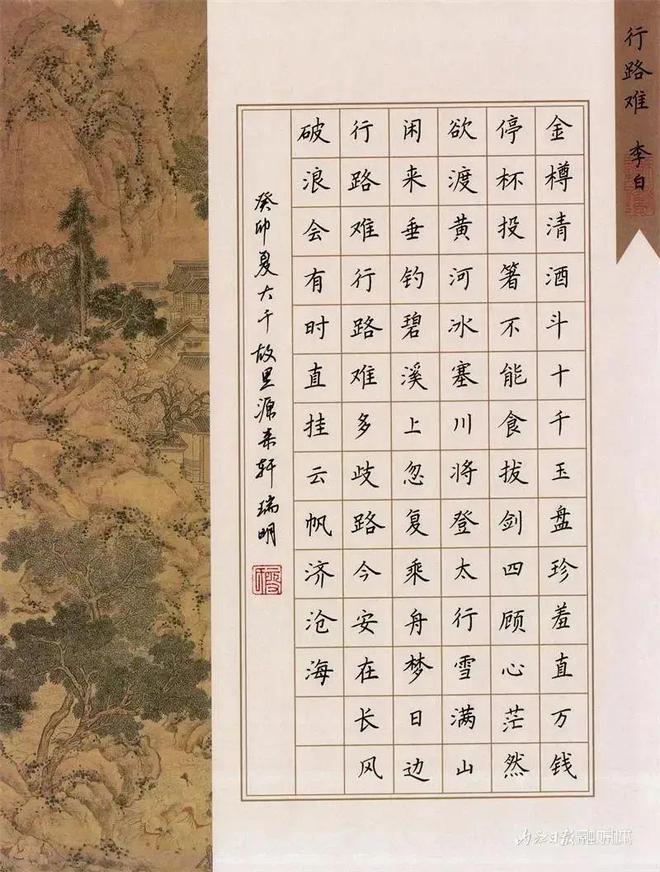 行路难 李白
金樽清酒斗十千玉盘珍羞直万钱
停杯投箸不能食拔剑四顾心茫然
欲渡黄河冰塞川将登太行雪满山
闲来垂钓碧溪上忽复乘舟梦日边
行路难行路难多歧路今安在长风
破浪会有时直挂云帆济沧海
癸卯夏大千故里源轩瑞明
内江日报